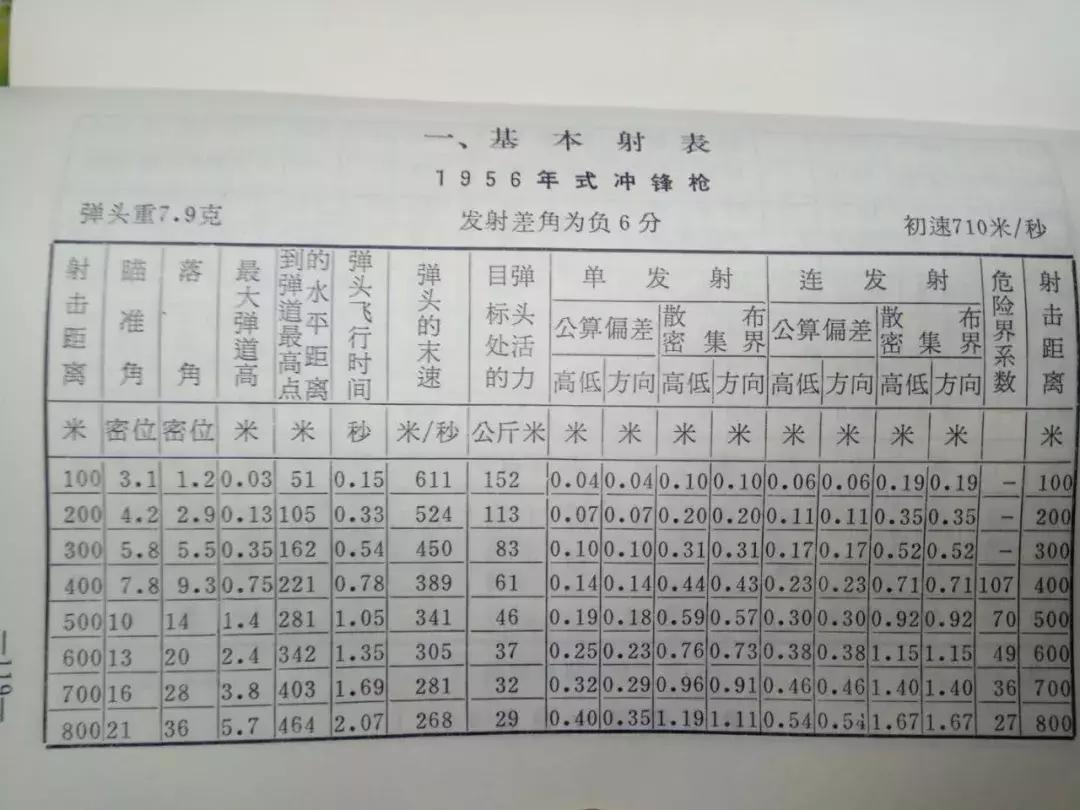 一、基本射表
1956年式冲锋枪
弹头重7.9克 发射差角为负6分 初速710米/秒
射击距离 瞄准角 落角 最大弹道高 到弹道最高点的水平距离 弹头飞行时间 弹头的末速 目标处的弹头活力 单发射 连发射 危险界系数 射击距离
公算偏差 散布密集界 公算偏差 散布密集界
高低 方向 高低 方向 高低 方向 高低 方向
米 密位 密位 米 米 秒 米/秒 公斤米 米 米 米 米 米 米 米 米 米
100 3.1 1.2 0.03 51 0.15 611 152 0.04 0.04 0.10 0.10 0.06 0.06 0.19 0.19 - 100
200 4.2 2.9 0.13 105 0.33 524 113 0.07 0.07 0.20 0.20 0.11 0.11 0.35 0.35 - 200
300 5.8 5.5 0.35 162 0.54 450 83 0.10 0.10 0.31 0.31 0.17 0.17 0.52 0.52 - 300
400 7.8 9.3 0.75 221 0.78 389 61 0.14 0.14 0.44 0.43 0.23 0.23 0.71 0.71 107 400
500 10 14 1.4 281 1.05 341 46 0.19 0.18 0.59 0.57 0.30 0.30 0.92 0.92 70 500
600 13 20 2.4 342 1.35 305 37 0.25 0.23 0.76 0.73 0.38 0.38 1.15 1.15 49 600
700 16 28 3.8 403 1.69 281 32 0.32 0.29 0.96 0.91 0.46 0.46 1.40 1.40 36 700
800 21 36 5.7 464 2.07 268 29 0.40 0.35 1.19 1.11 0.54 0.54 1.67 1.67 27 800
—119—